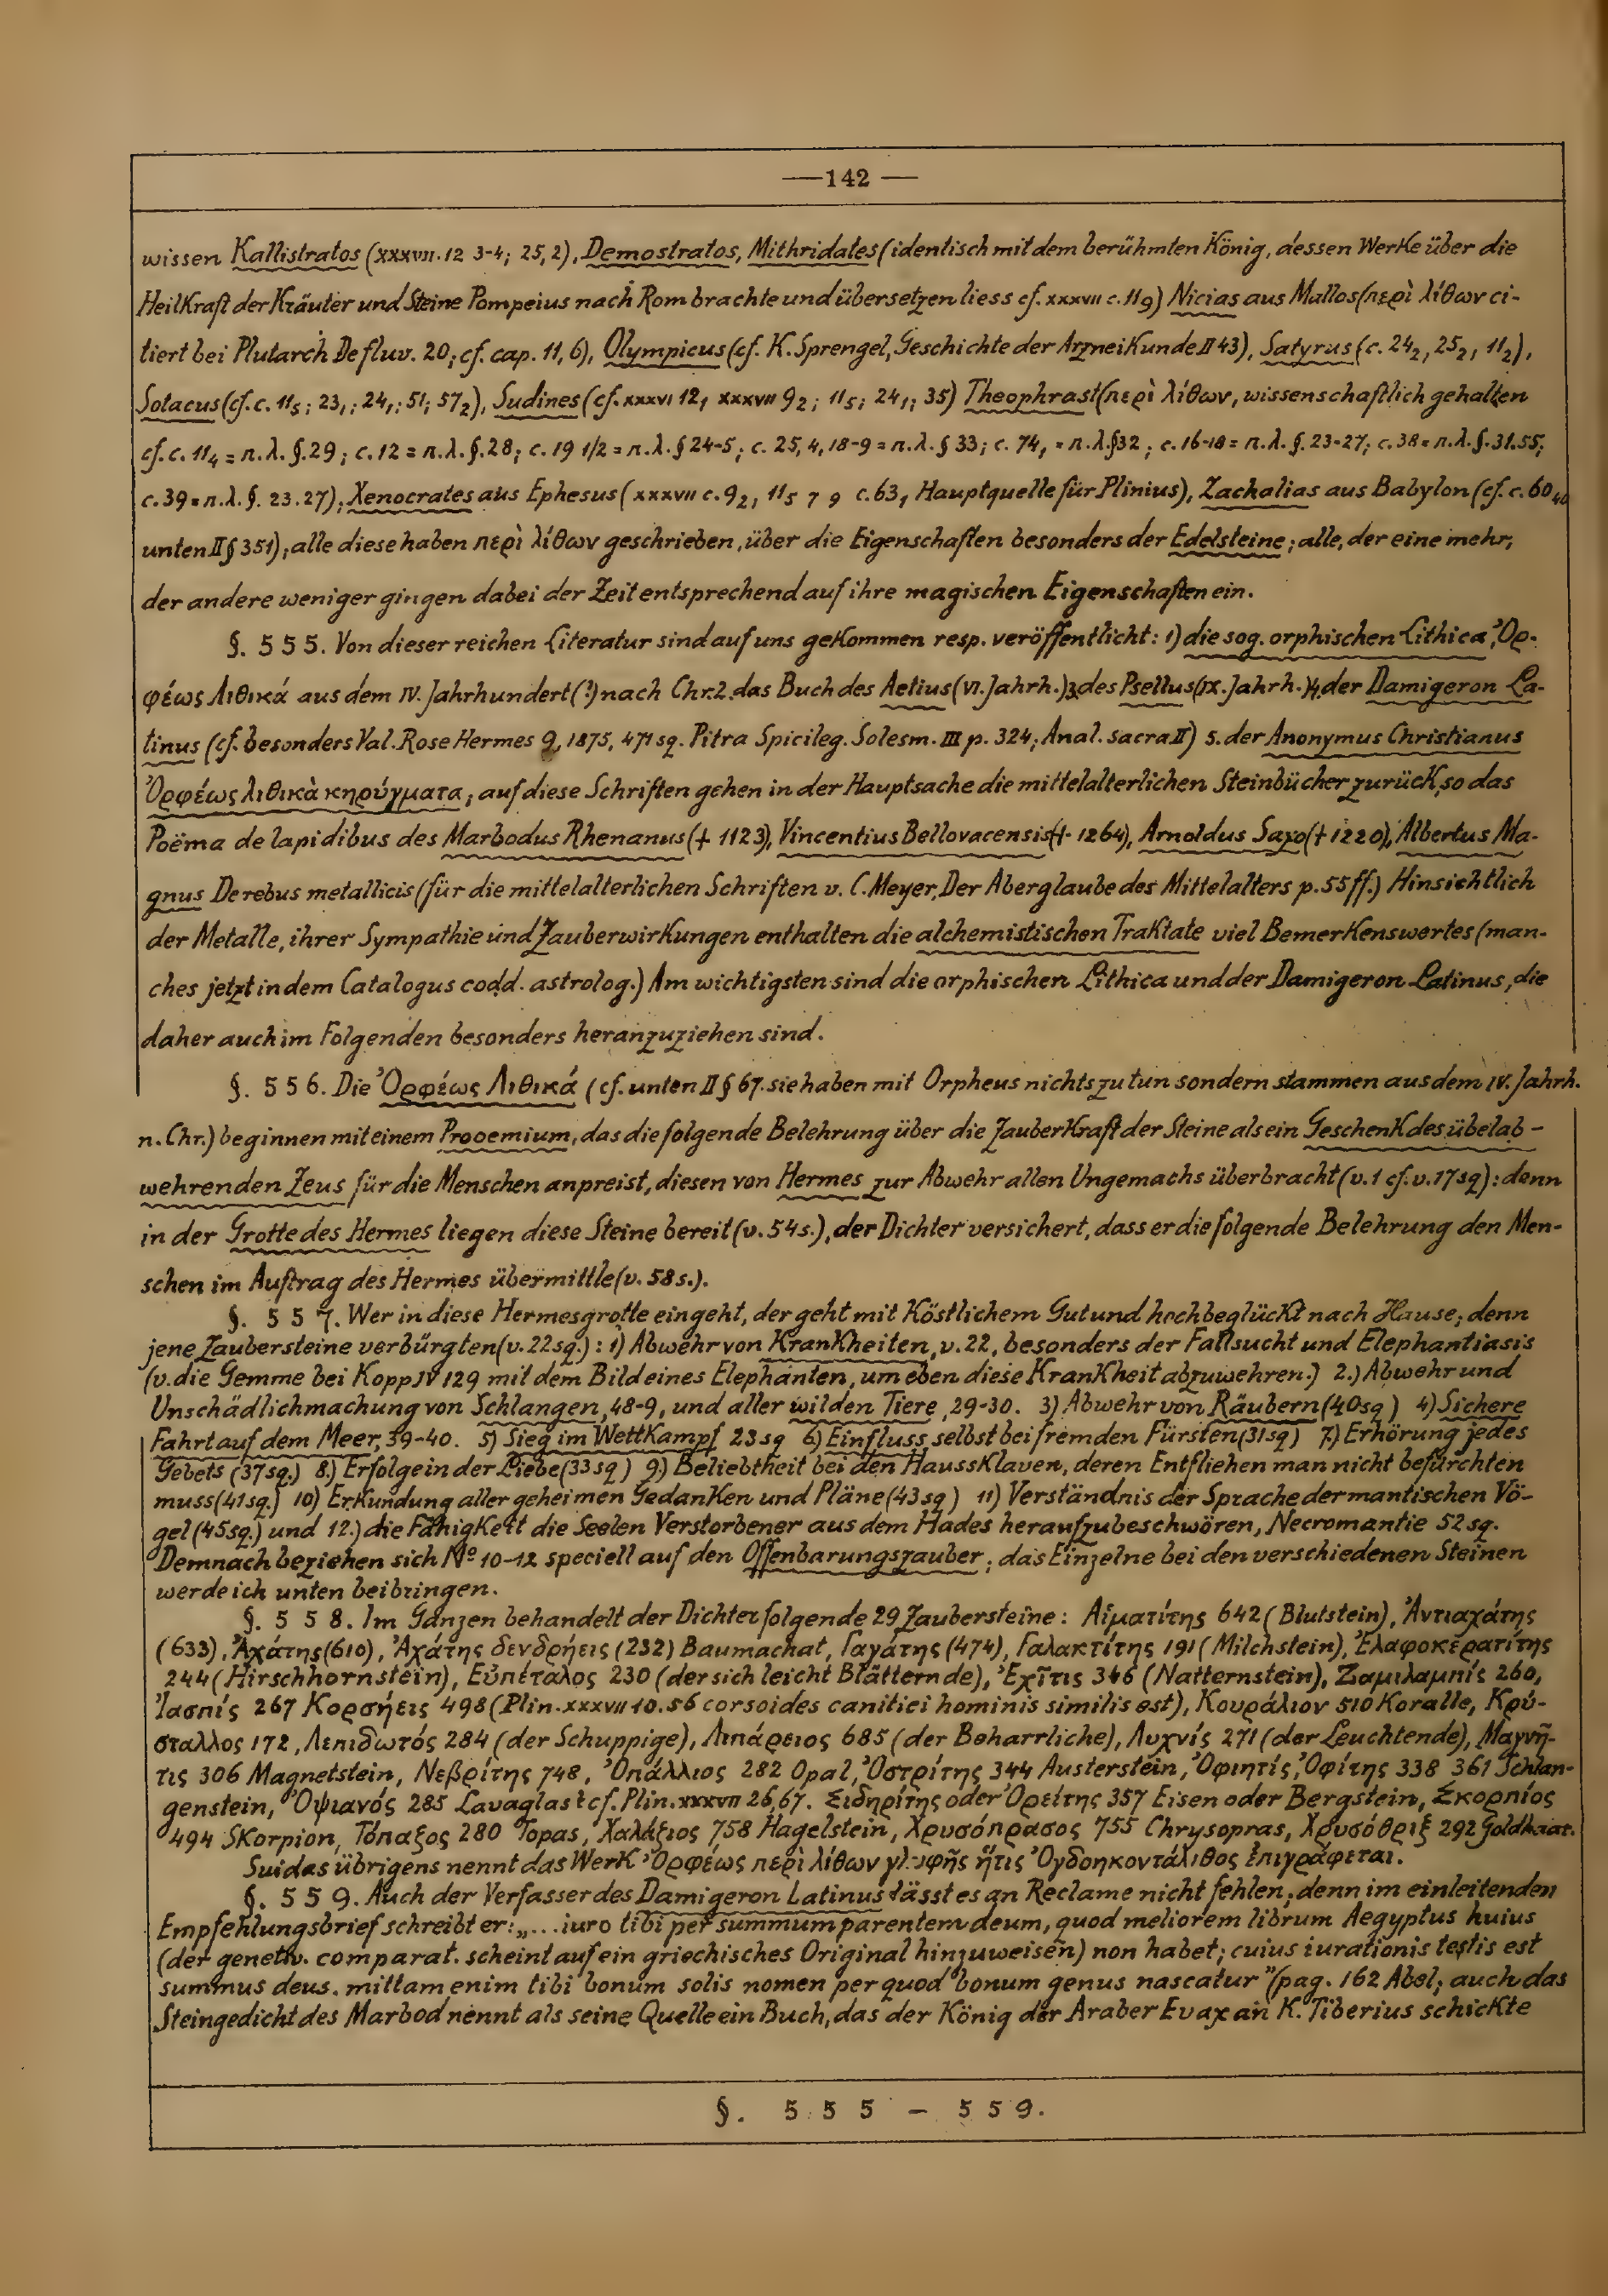 —142—
wissen Kallistratos (XXXVII.12 3-4; 25,2), Demostratos, Mithridates (identisch mit dem berühmten König, dessen Werke über die
Heilkraft der Kräuter und Steine Pompeius nach Rom brachte und übersetzen liess cf. XXXVII c. 11₉) Nicias aus Mallos (περὶ λίθων ci-
tiert bei Plutarch De fluv. 20; cf. cap. 11, 6), Olympicus (cf. K. Sprengel, Geschichte der Arzneikunde II 43), Satyrus (c. 24₂, 25₂, 11₂),
Sotacus (cf. c. 11₅; 23₁; 24₁; 51; 57₂), Sudines (cf. XXXVI 12, XXXVII 9₂; 11₅; 24₁; 35) Theophrast (περὶ λίθων, wissenschaftlich gehalten
cf. c. 11₄ = π. λ. §. 29; c. 12 = π. λ. §. 28; c. 19 1/2 = π. λ. § 24-5; c. 25, 4, 18-9 = π. λ. § 33; c. 74₁ = π. λ. §32; c. 16-18 = π. λ. §. 23-27; c. 38 = π. λ. §. 31.55;
c. 39 = π. λ. §. 23.27); Xenocrates aus Ephesus (XXXVII c. 9₂, 11₅ 7 9 c. 63, Hauptquelle für Plinius), Zachalias aus Babylon (cf. c. 60₄₀
unten II § 351); alle diese haben περὶ λίθων geschrieben, über die Eigenschaften besonders der Edelsteine; alle, der eine mehr,
der andere weniger gingen dabei der Zeit entsprechend auf ihre magischen Eigenschaften ein.
§. 555. Von dieser reichen Literatur sind auf uns gekommen resp. veröffentlicht: 1) die sog. orphischen Lithica, Ὀρ-
φέως Λιθικά aus dem IV. Jahrhundert (?) nach Chr. 2. das Buch des Aetius (VI. Jahrh.) 3. des Psellus (IX. Jahrh.) 4. der Damigeron La-
tinus (cf. besonders Val. Rose Hermes 9, 1875, 471 sq. Pitra Spicileg. Solesm. III p. 324; Anal. sacra II) 5. der Anonymus Christianus
Ὀρφέως λιθικὰ κηρύγματα; auf diese Schriften gehen in der Hauptsache die mittelalterlichen Steinbücher zurück, so das
Poëma de lapidibus des Marbodus Rhenanus († 1123), Vincentius Bellovacensis († 1264), Arnoldus Saxo († 1220), Albertus Ma-
gnus De rebus metallicis (für die mittelalterlichen Schriften v. C. Meyer, Der Aberglaube des Mittelalters p. 55 ff.) Hinsichtlich
der Metalle, ihrer Sympathie und Zauberwirkungen enthalten die alchemistischen Traktate viel Bemerkenswertes (man-
ches jetzt in dem Catalogus codd. astrolog.) Am wichtigsten sind die orphischen Lithica und der Damigeron Latinus, die
daher auch im Folgenden besonders heranzuziehen sind.
§. 556. Die Ὀρφέως Λιθικά (cf. unten II § 67. sie haben mit Orpheus nichts zu tun sondern stammen aus dem IV. Jahrh.
n. Chr.) beginnen mit einem Prooemium, das die folgende Belehrung über die Zauberkraft der Steine als ein Geschenk des übelab-
wehrenden Zeus für die Menschen anpreist, diesen von Hermes zur Abwehr allen Ungemachs überbracht (v. 1 cf. v. 17 sq): denn
in der Grotte des Hermes liegen diese Steine bereit (v. 54 s.), der Dichter versichert, dass er die folgende Belehrung den Men-
schen im Auftrag des Hermes übermittle (v. 58 s.).
§. 557. Wer in diese Hermesgrotte eingeht, der geht mit Köstlichem Gut und hochbeglückt nach Hause; denn
jene Zaubersteine verbürgten (v. 22 sq.): 1) Abwehr von Krankheiten, v. 22, besonders der Fallsucht und Elephantiasis
(v. die Gemme bei Kopp IV 129 mit dem Bild eines Elephanten, um eben diese Krankheit abzuwehren.) 2.) Abwehr und
Unschädlichmachung von Schlangen, 48-9, und aller wilden Tiere, 29-30. 3) Abwehr von Räubern (40 sq) 4) Sichere
Fahrt auf dem Meer, 39-40. 5) Sieg im Wettkampf 23 sq 6) Einfluss selbst bei fremden Fürsten (31 sq) 7.) Erhörung jedes
Gebets (37 sq.) 8.) Erfolge in der Liebe (33 sq) 9.) Beliebtheit bei den Haussklaven, deren Entfliehen man nicht befürchten
muss (41 sq.) 10) Erkundung aller geheimen Gedanken und Pläne (43 sq) 11) Verständnis der Sprache der mantischen Vö-
gel (45 sq.) und 12.) die Fähigkeit die Seelen Verstorbener aus dem Hades heraufzubeschwören, Necromantie 52 sq.
Demnach beziehen sich Nº 10-12 speciell auf den Offenbarungszauber; das Einzelne bei den verschiedenen Steinen
werde ich unten beibringen.
§. 558. Im Ganzen behandelt der Dichter folgende 29 Zaubersteine: Αἱματίτης 642 (Blutstein), Ἀντιαχάτης
(633), Ἀχάτης (610), Ἀχάτης δενδρήεις (232) Baumachat, Γαγάτης (474), Γαλακτίτης 191 (Milchstein), Ἐλαφοκερατίτης
244 (Hirschhornstein), Εὐπέταλος 230 (der sich leicht Blätternde), Ἐχῖτις 346 (Natternstein), Ζαμιλαμπίς 260,
Ἰασπίς 267 Κορσήεις 498 (Plin. XXXVII 10.56 corsoides canitiei hominis similis est), Κουράλιον 510 Koralle, Κρύ-
σταλλος 172, Λεπιδωτός 284 (der Schuppige), Λιπάρειος 685 (der Beharrliche), Λυχνίς 271 (der Leuchtende), Μαγνῆ-
τις 306 Magnetstein, Νεβρίτης 748, Ὀπάλλιος 282 Opal, Ὀστρίτης 344 Austerstein, Ὀφιητίς, Ὀφίτης 338 361 Schlan-
genstein, Ὀψιανός 285 Lavaglas? cf. Plin. XXXVII 26,67. Σιδηρίτης oder Ὀρείτης 357 Eisen oder Bergstein, Σκορπίος
494 Skorpion, Τόπαζος 280 Topas, Χαλάζιος 758 Hagelstein, Χρυσόπρασος 755 Chrysopras, Χρυσόθριξ 292 Goldhaar.
Suidas übrigens nennt das Werk Ὀρφέως περὶ λίθων γλυφῆς ἥτις Ὀγδοηκοντάλιθος ἐπιγράφεται.
§. 559. Auch der Verfasser des Damigeron Latinus lässt es an Reclame nicht fehlen; denn im einleitenden
Empfehlungsbrief schreibt er: „... iuro tibi per summum parentem deum, quod meliorem librum Aegyptus huius
(der genetiv. comparat. scheint auf ein griechisches Original hinzuweisen) non habet; cuius iurationis testis est
summus deus. mittam enim tibi bonum solis nomen per quod bonum genus nascatur" (pag. 162 Abel; auch das
Steingedicht des Marbod nennt als seine Quelle ein Buch, das der König der Araber Evax an K. Tiberius schickte
§. 555 – 559.